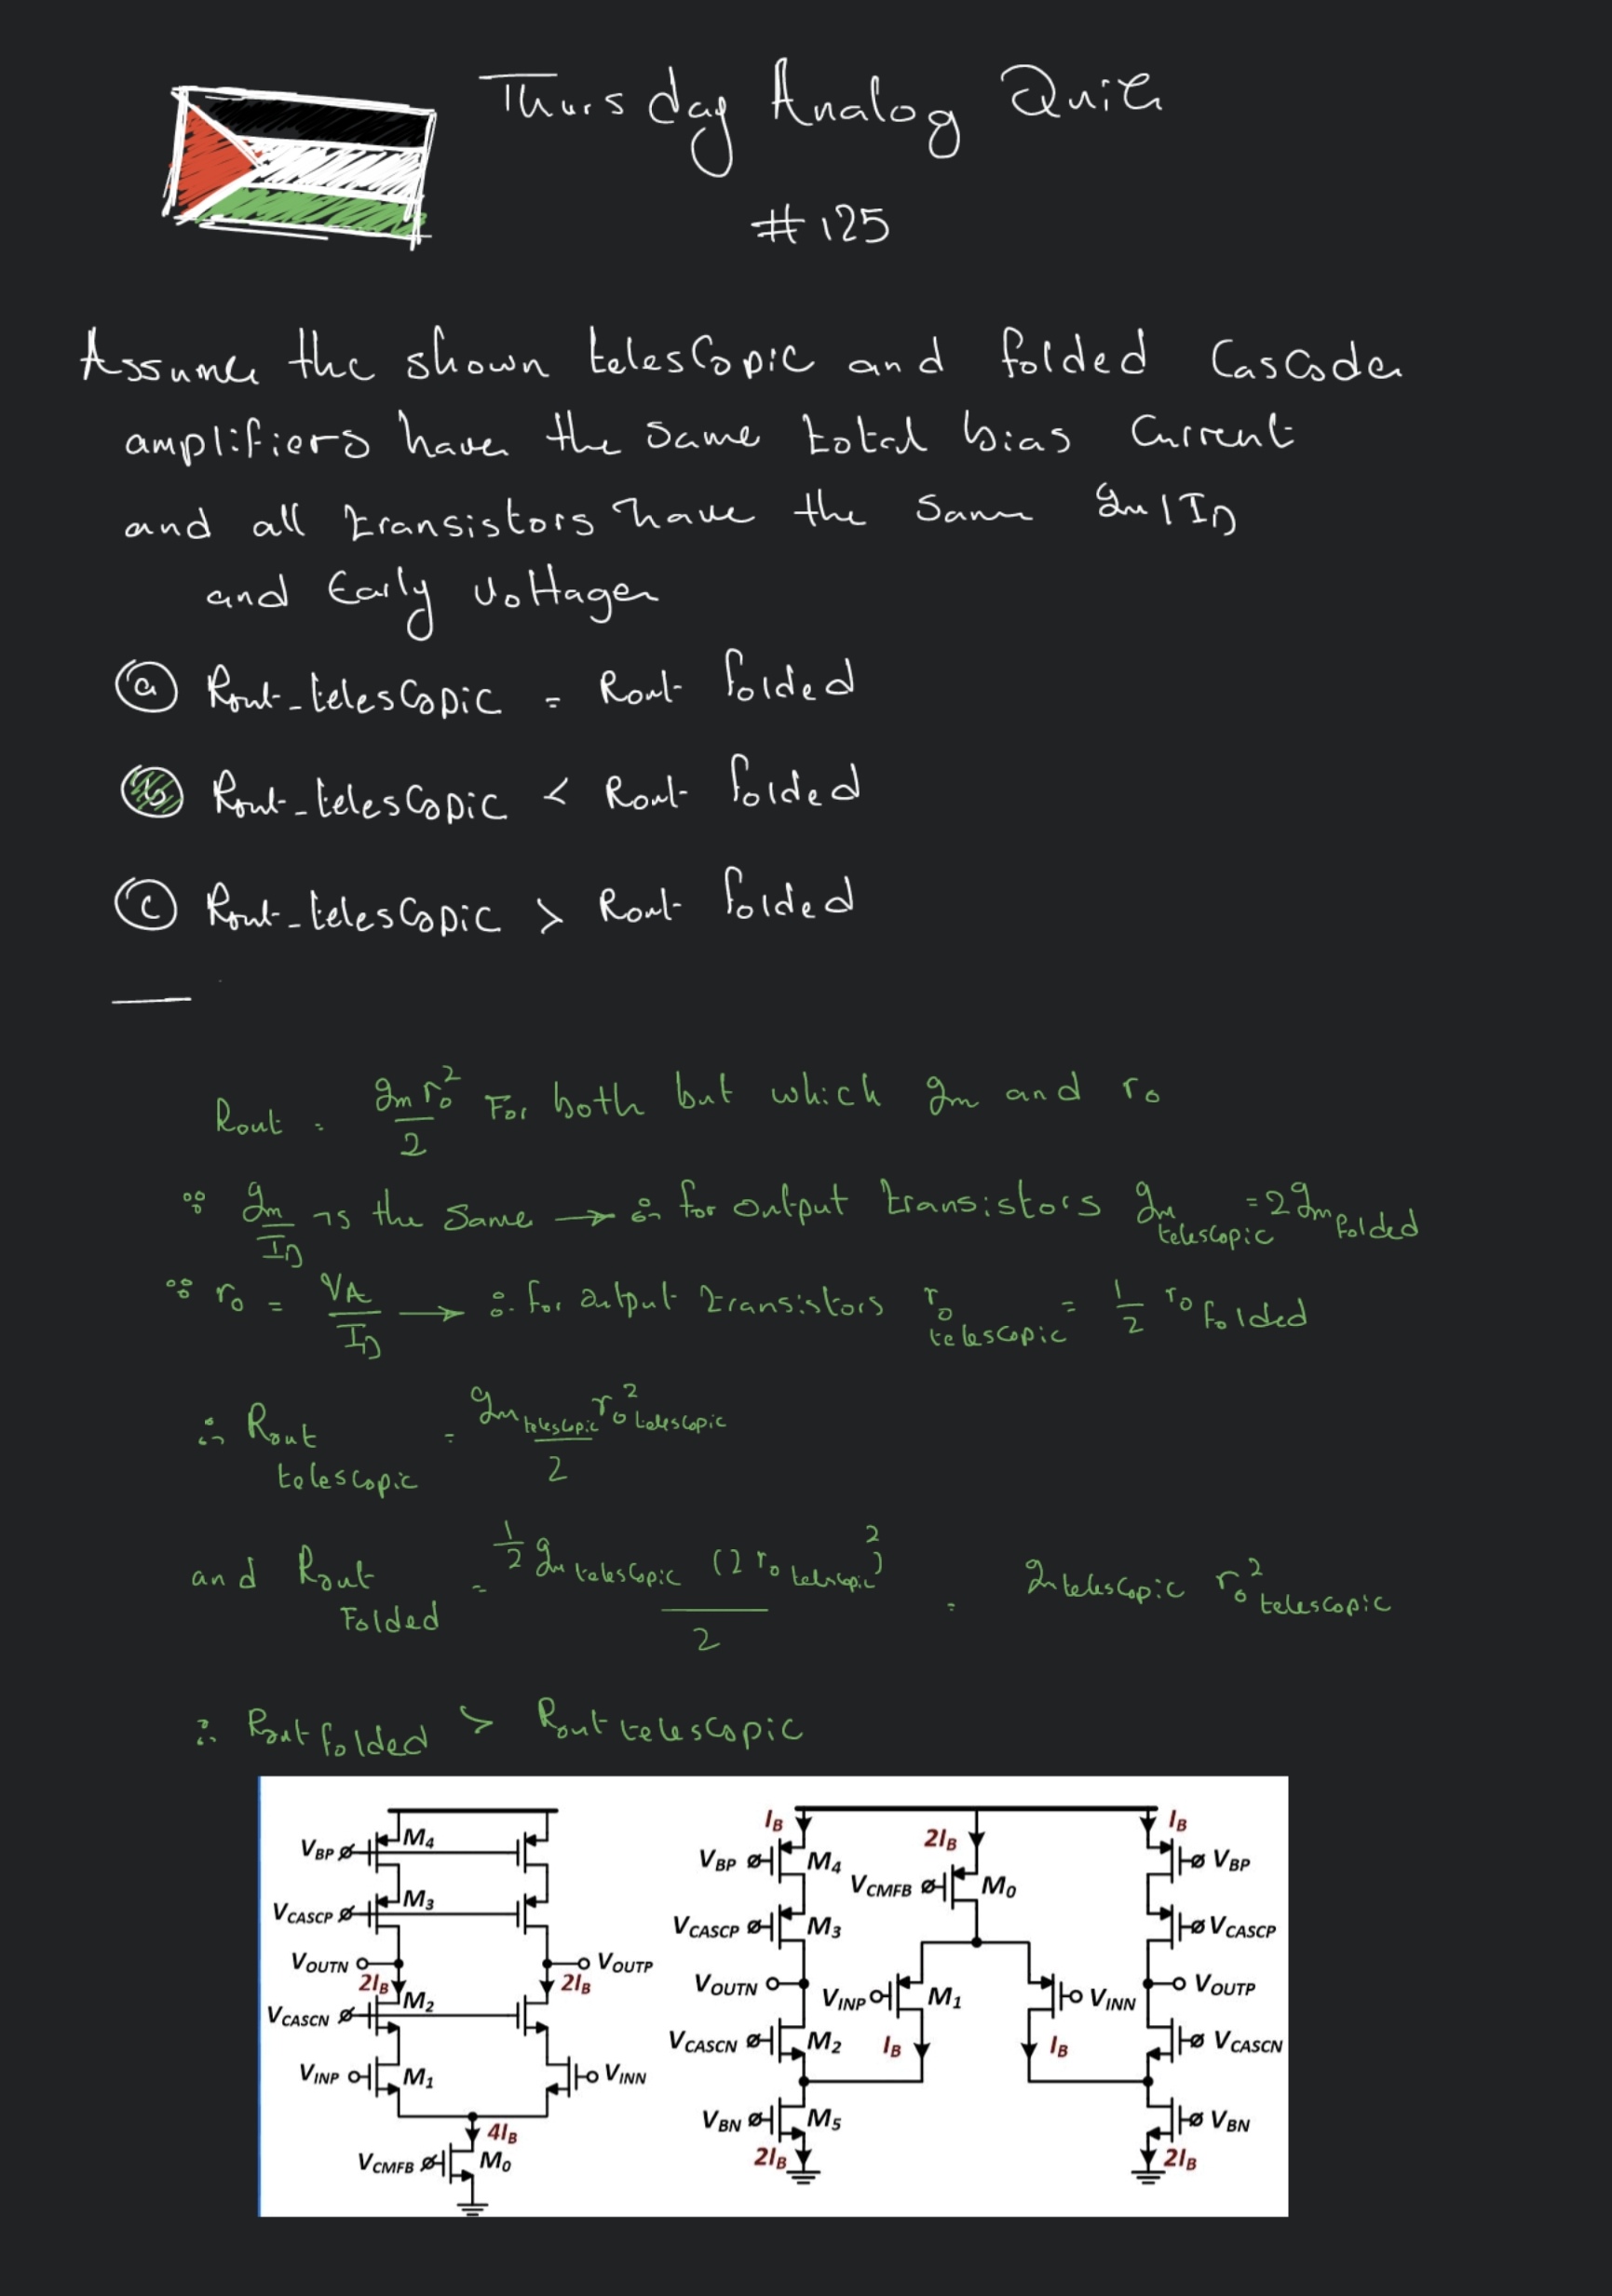 Thursday Analog Quiz
#125
Assume the shown telescopic and folded Cascode
amplifiers have the same total bias Current
and all transistors have the same gm/ID
and Early Voltage
(a) Rout-telescopic = Rout folded
(b) Rout-telescopic < Rout folded
(c) Rout-telescopic > Rout folded
Rout = gm ro² / 2 For both but which gm and ro
∵ gm/ID is the same → ∴ for output transistors gm telescopic = 2 gm folded
∵ ro = VA/ID → ∴ for output transistors ro telescopic = 1/2 ro folded
∴ Rout telescopic = gm telescopic ro² telescopic / 2
and Rout Folded = 1/2 gm telescopic (2 ro telescopic)² / 2 = gm telescopic ro² telescopic
∴ Rout folded > Rout telescopic
VBP M4
VCASCP M3
VOUTN VOUTP
2IB 2IB
VCASCN M2
VINP M1 VINN
4IB
VCMFB M0
IB 2IB IB
VBP M4 VCMFB M0 VBP
VCASCP M3 VCASCP
VOUTN VINP M1 VINN VOUTP
VCASCN M2 IB IB VCASCN
VBN M5 VBN
2IB 2IB